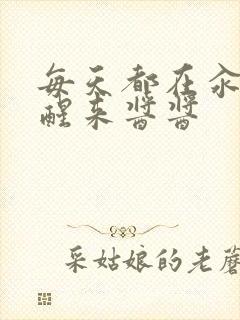 每天都在汆
醒来酱酱
采姑娘的老蘑